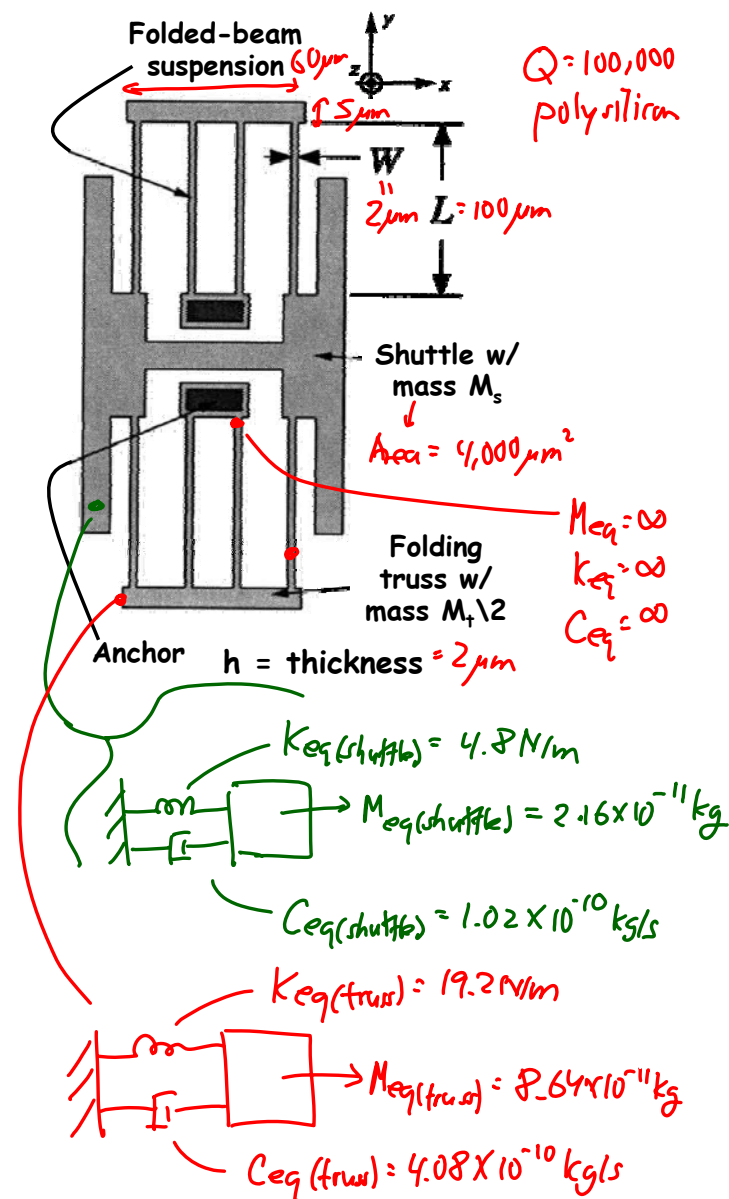 Folded-beam
suspension
60μm
y
z
x
Q=100,000
polysilicon
5μm
W
"
2μm
L=100μm
Shuttle w/
mass Ms
Area = 4,000μm²
Meq=∞
Keq=∞
Ceq=∞
Folding
truss w/
mass Mt\2
Anchor
h = thickness = 2μm
Keq(shuttle) = 4.8N/m
Meq(shuttle) = 2.16×10⁻¹¹kg
Ceq(shuttle) = 1.02×10⁻¹⁰kg/s
Keq(truss) = 19.2N/m
Meq(truss) = 8.64×10⁻¹¹kg
Ceq(truss) = 4.08×10⁻¹⁰kg/s